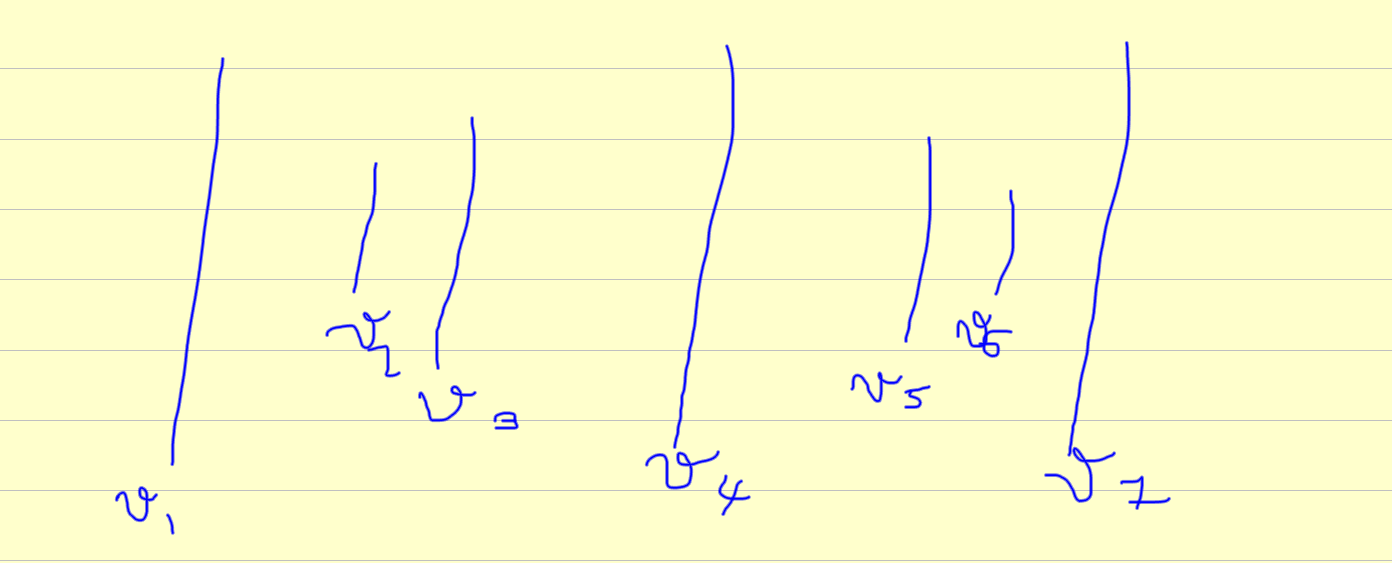 v₁ v₂ v₃ v₄ v₅ v₆ v₇